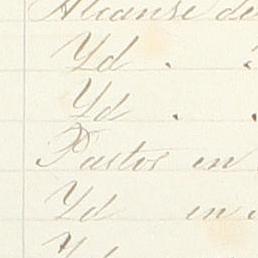 Alcanse de
Yd .
Yd .
Pastos en
Yd en
Yd